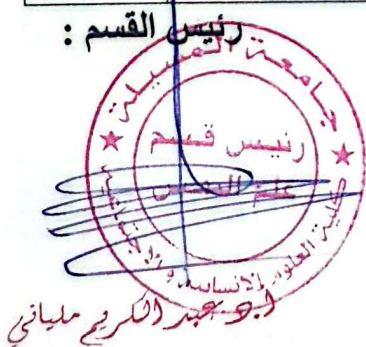 رئيس القسم :
جامعة المسيلة
رئيس قسم
علم النفس
كلية العلوم الإنسانية والاجتماعية
أ.د. عبد الكريم ملياني